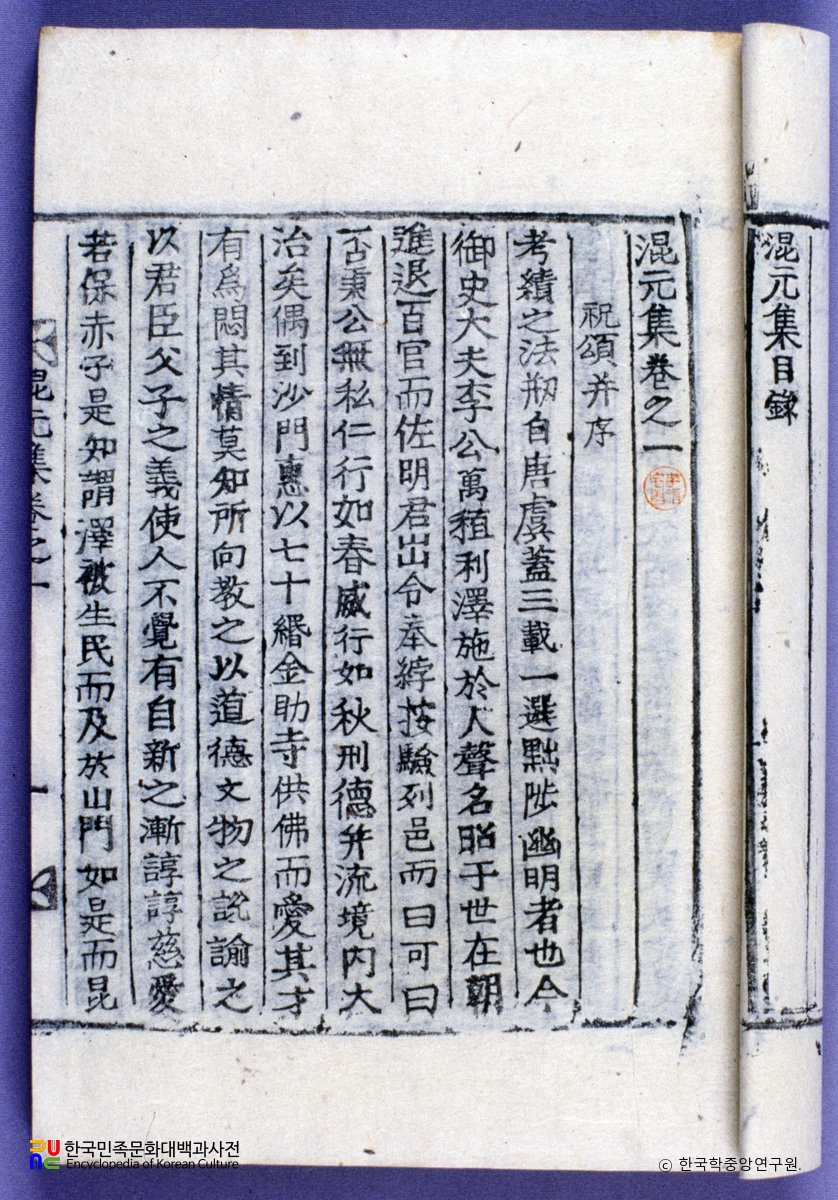 混元集目錄
混元集卷之一
祝頌并序
考績之法刱自唐虞蓋三載一選黜陟幽明者也今
御史大夫李公萬稙利澤施於人聲名昭于世在朝
進退百官而佐明君出令奉綍按驗列邑而曰可曰
否秉公無私仁行如春威行如秋刑德并流境內大
治矣偶到沙門惠以七十緡金助寺供佛而愛其才
有爲悶其情莫知所向教之以道德文物之說諭之
以君臣父子之義使人不覺有自新之漸諄諄慈愛
若保赤子是知謂澤被生民而及於山門如是而昆
混元集卷之一
一
한국민족문화대백과사전
Encyclopedia of Korean Culture
ⓒ 한국학중앙연구원.